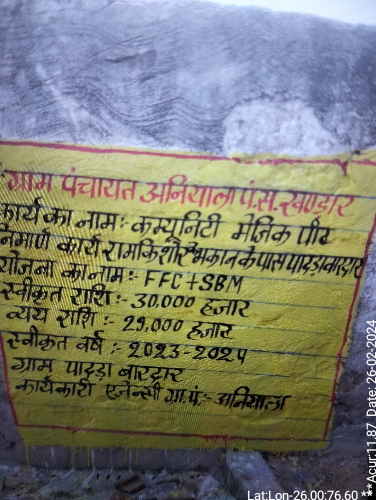 ग्राम पंचायत अनियाला पं.स. खण्डार
कार्य का नाम:- कम्यूनिटी मेजिक पीट
निर्माण कार्य रामकिशोर के मकान के पास पादड़ा बारदार
योजना का नाम:- FFC+SBM
स्वीकृत राशि:- 30,000 हजार
व्यय राशि:- 29,000 हजार
स्वीकृत वर्ष:- 2023-2024
ग्राम पादड़ा बारदार
कार्यकारी एजेन्सी ग्रा.पं:- अनियाला
Lat:Lon-26.00:76.60 **Acur:11.87 Date: 26-02-2024